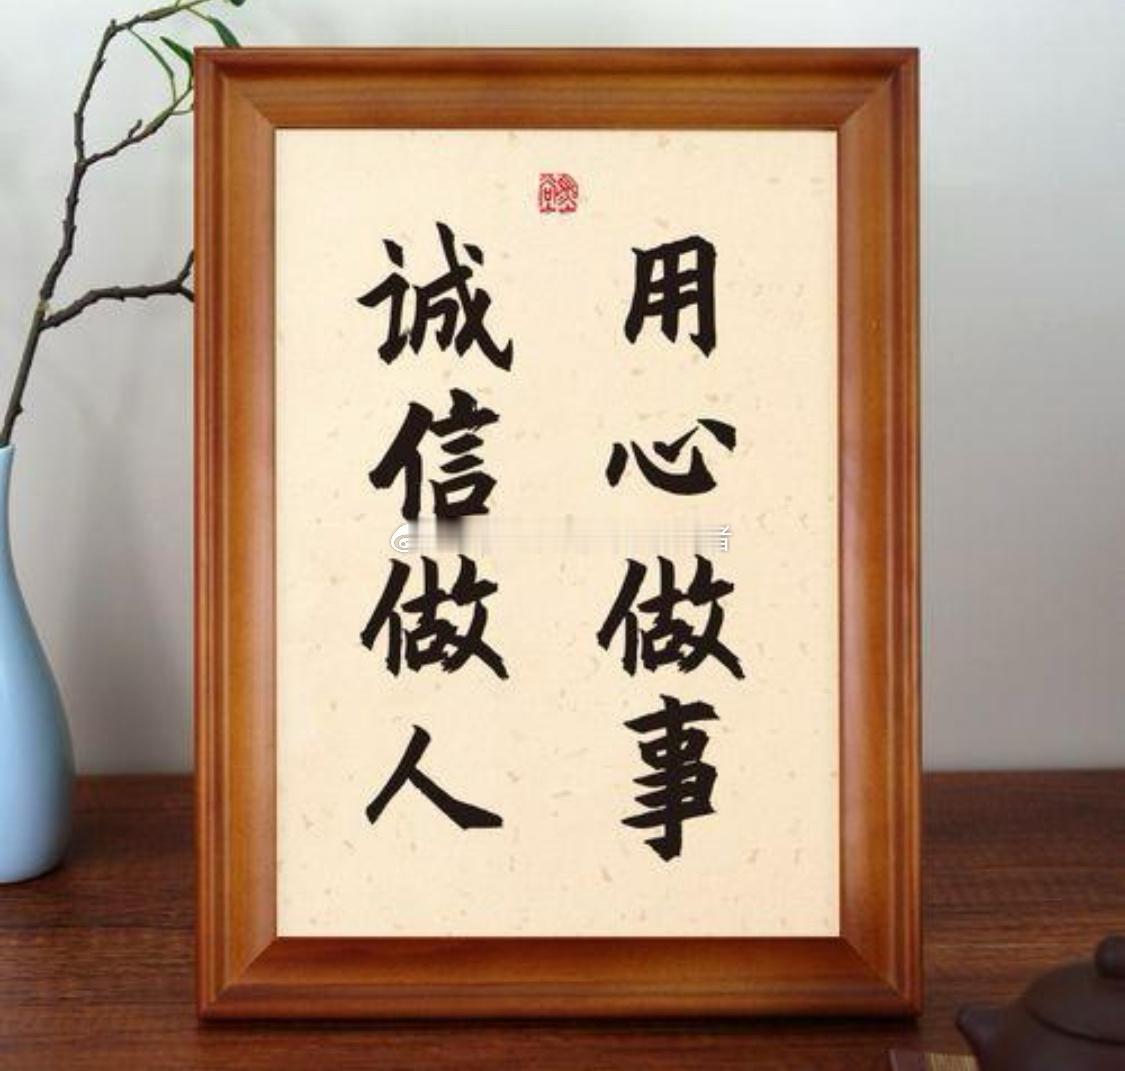 用心做事
诚信做人